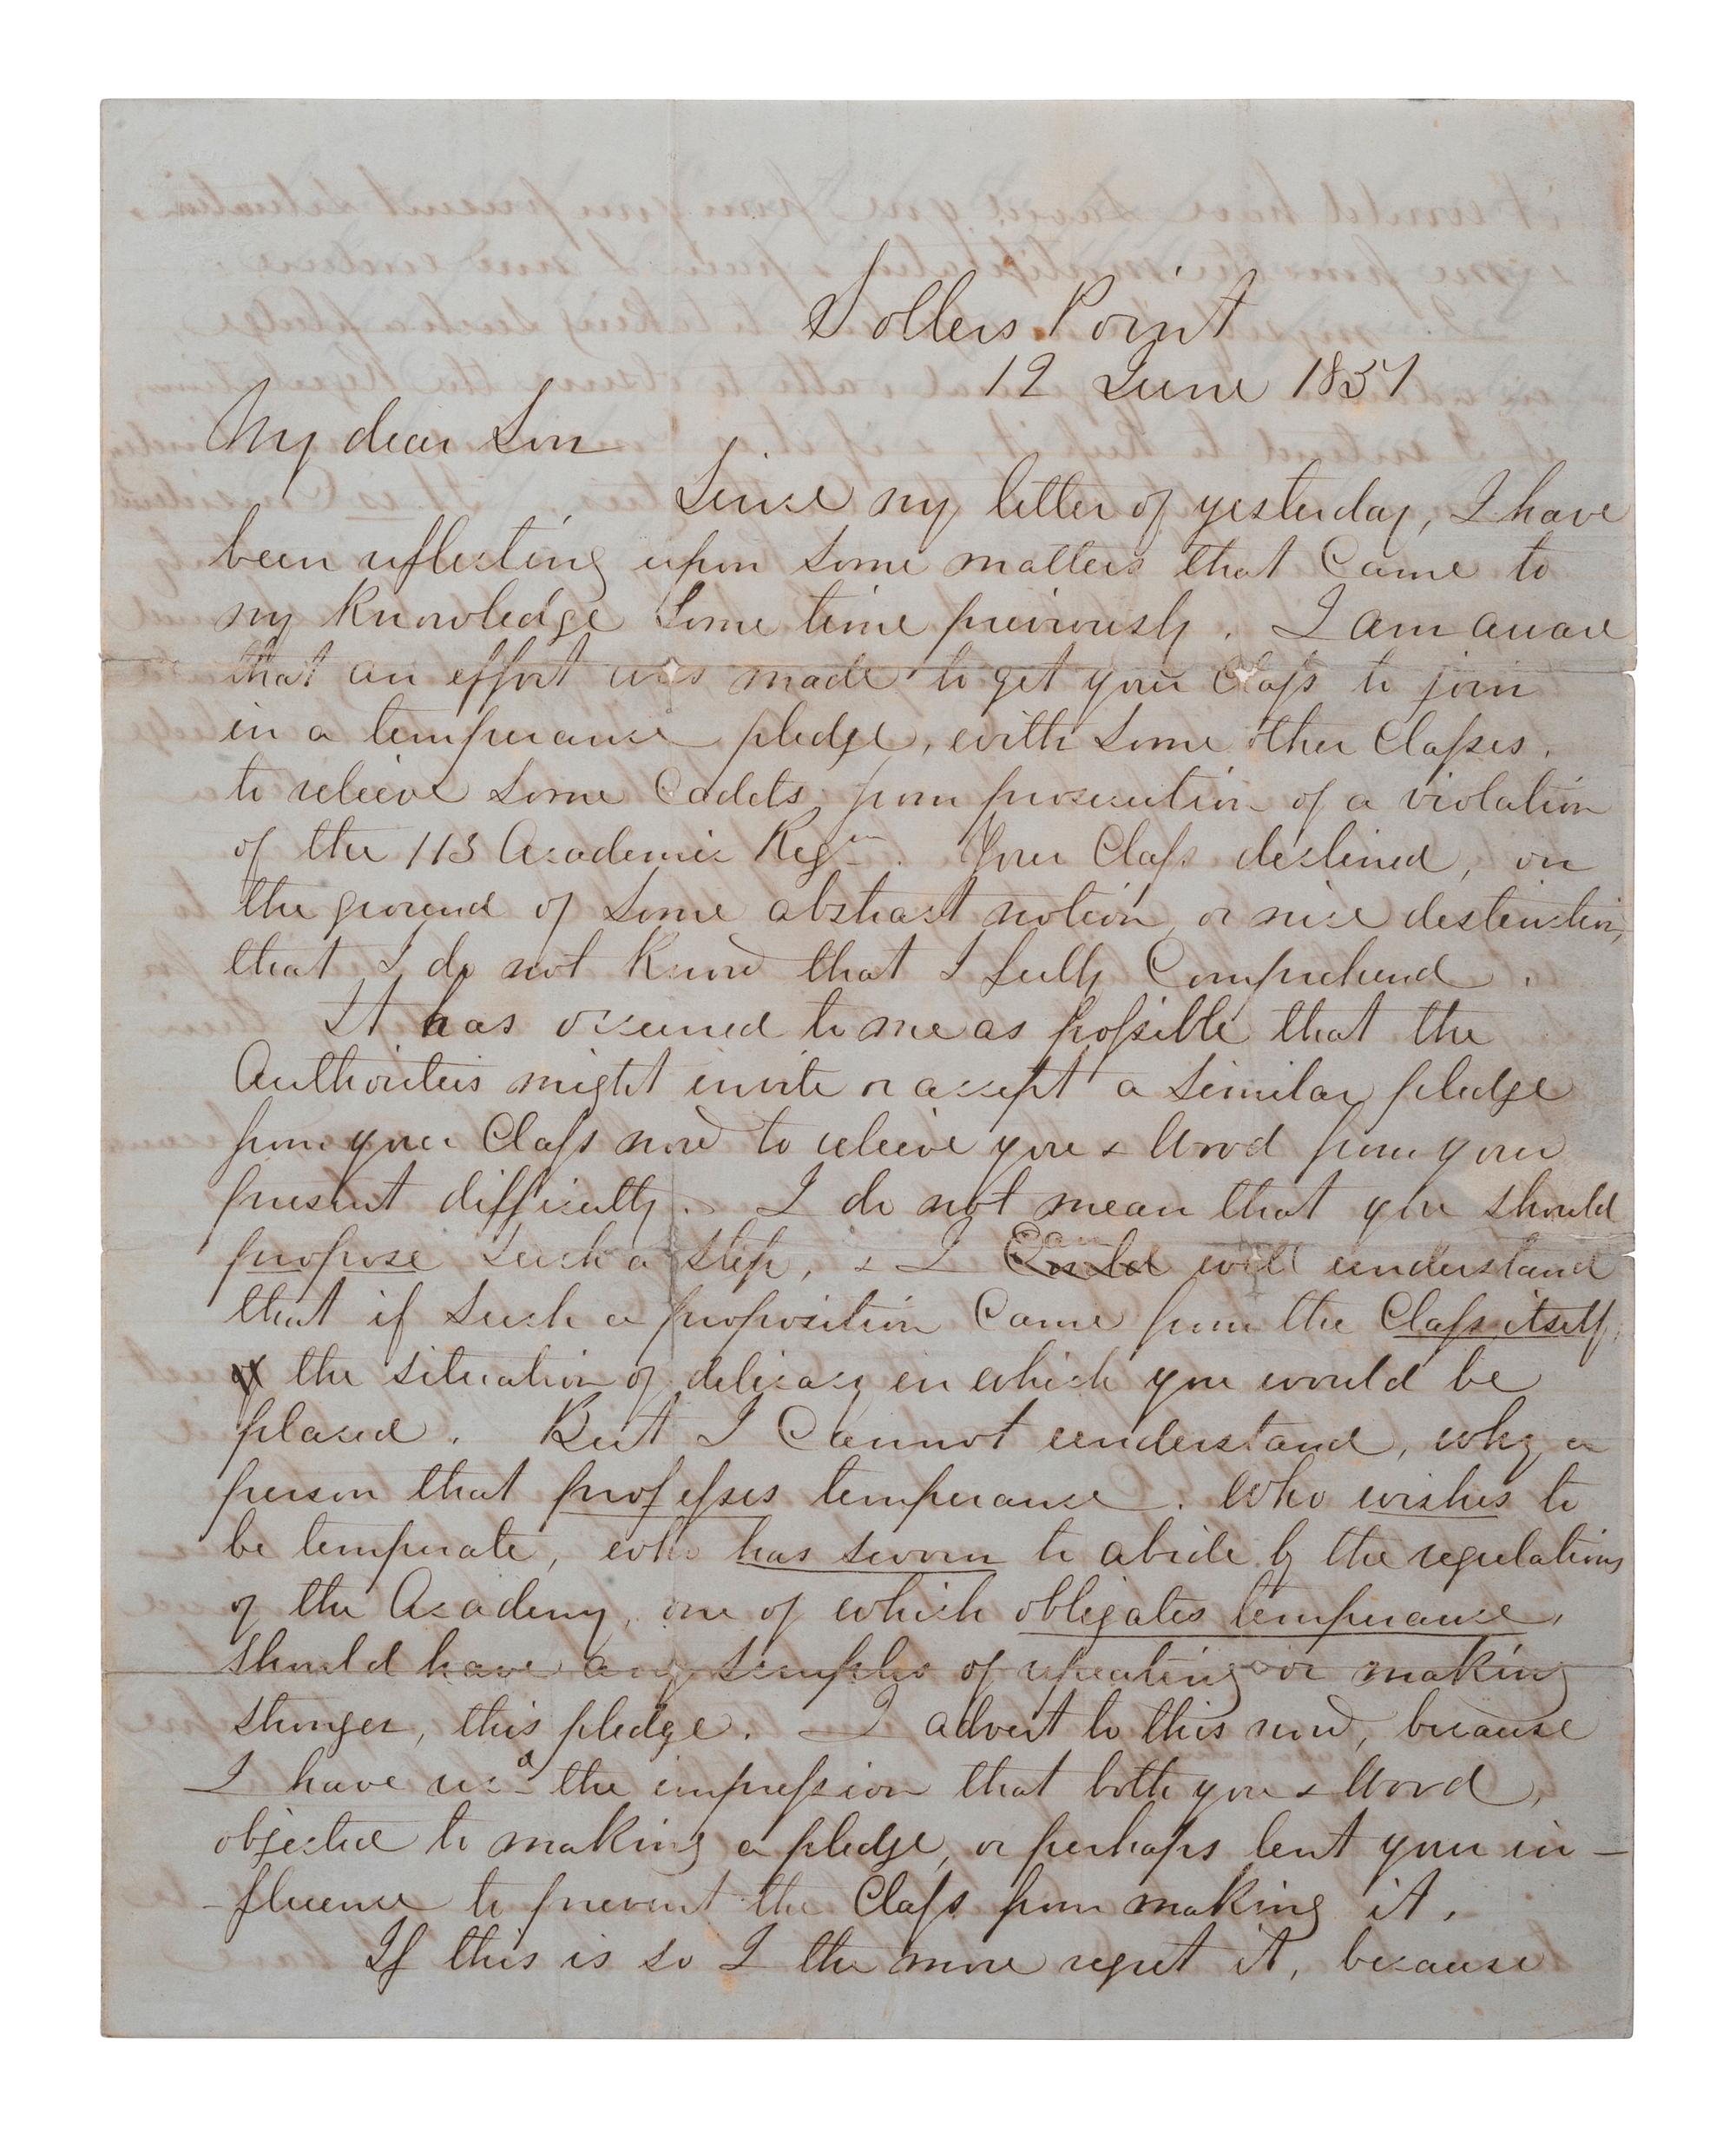 Sollers Point
12 June 1851
My dear Son
Since my letter of yesterday, I have
been reflecting upon some matters that Came to
my Knowledge some time previously. I am aware
that an effort was made to get your Class to join
in a temperance pledge, with some other Classes.
to relieve some Cadets from prosecution of a violation
of the 113 Academic Regn. Your Class declined, on
the ground of some abstract notion, or nice destinction,
that I do not Know that I fully Comprehend.
It has occurred to me as possible that the
Authorities might invite or accept a similar pledge
from your Class now to relieve you & Wood from your
present difficulty. I do not mean that you should
propose such a step, & I Can well understand
that if such a proposition Came from the Class itself,
the situation of delicacy in which you would be
placed. But I Cannot understand, why a
person that professes temperance. Who wishes to
be temperate, who has sworn to abide by the regulations
of the Academy, one of which obligates temperance,
should have any scruples of repeating or making
stronger, this pledge. I advert to this now, because
I have recd the impression that both you & Wood,
objected to making a pledge, or perhaps lent your in-
-fluence to prevent the Class from making it.
If this is so I the more regret it, because